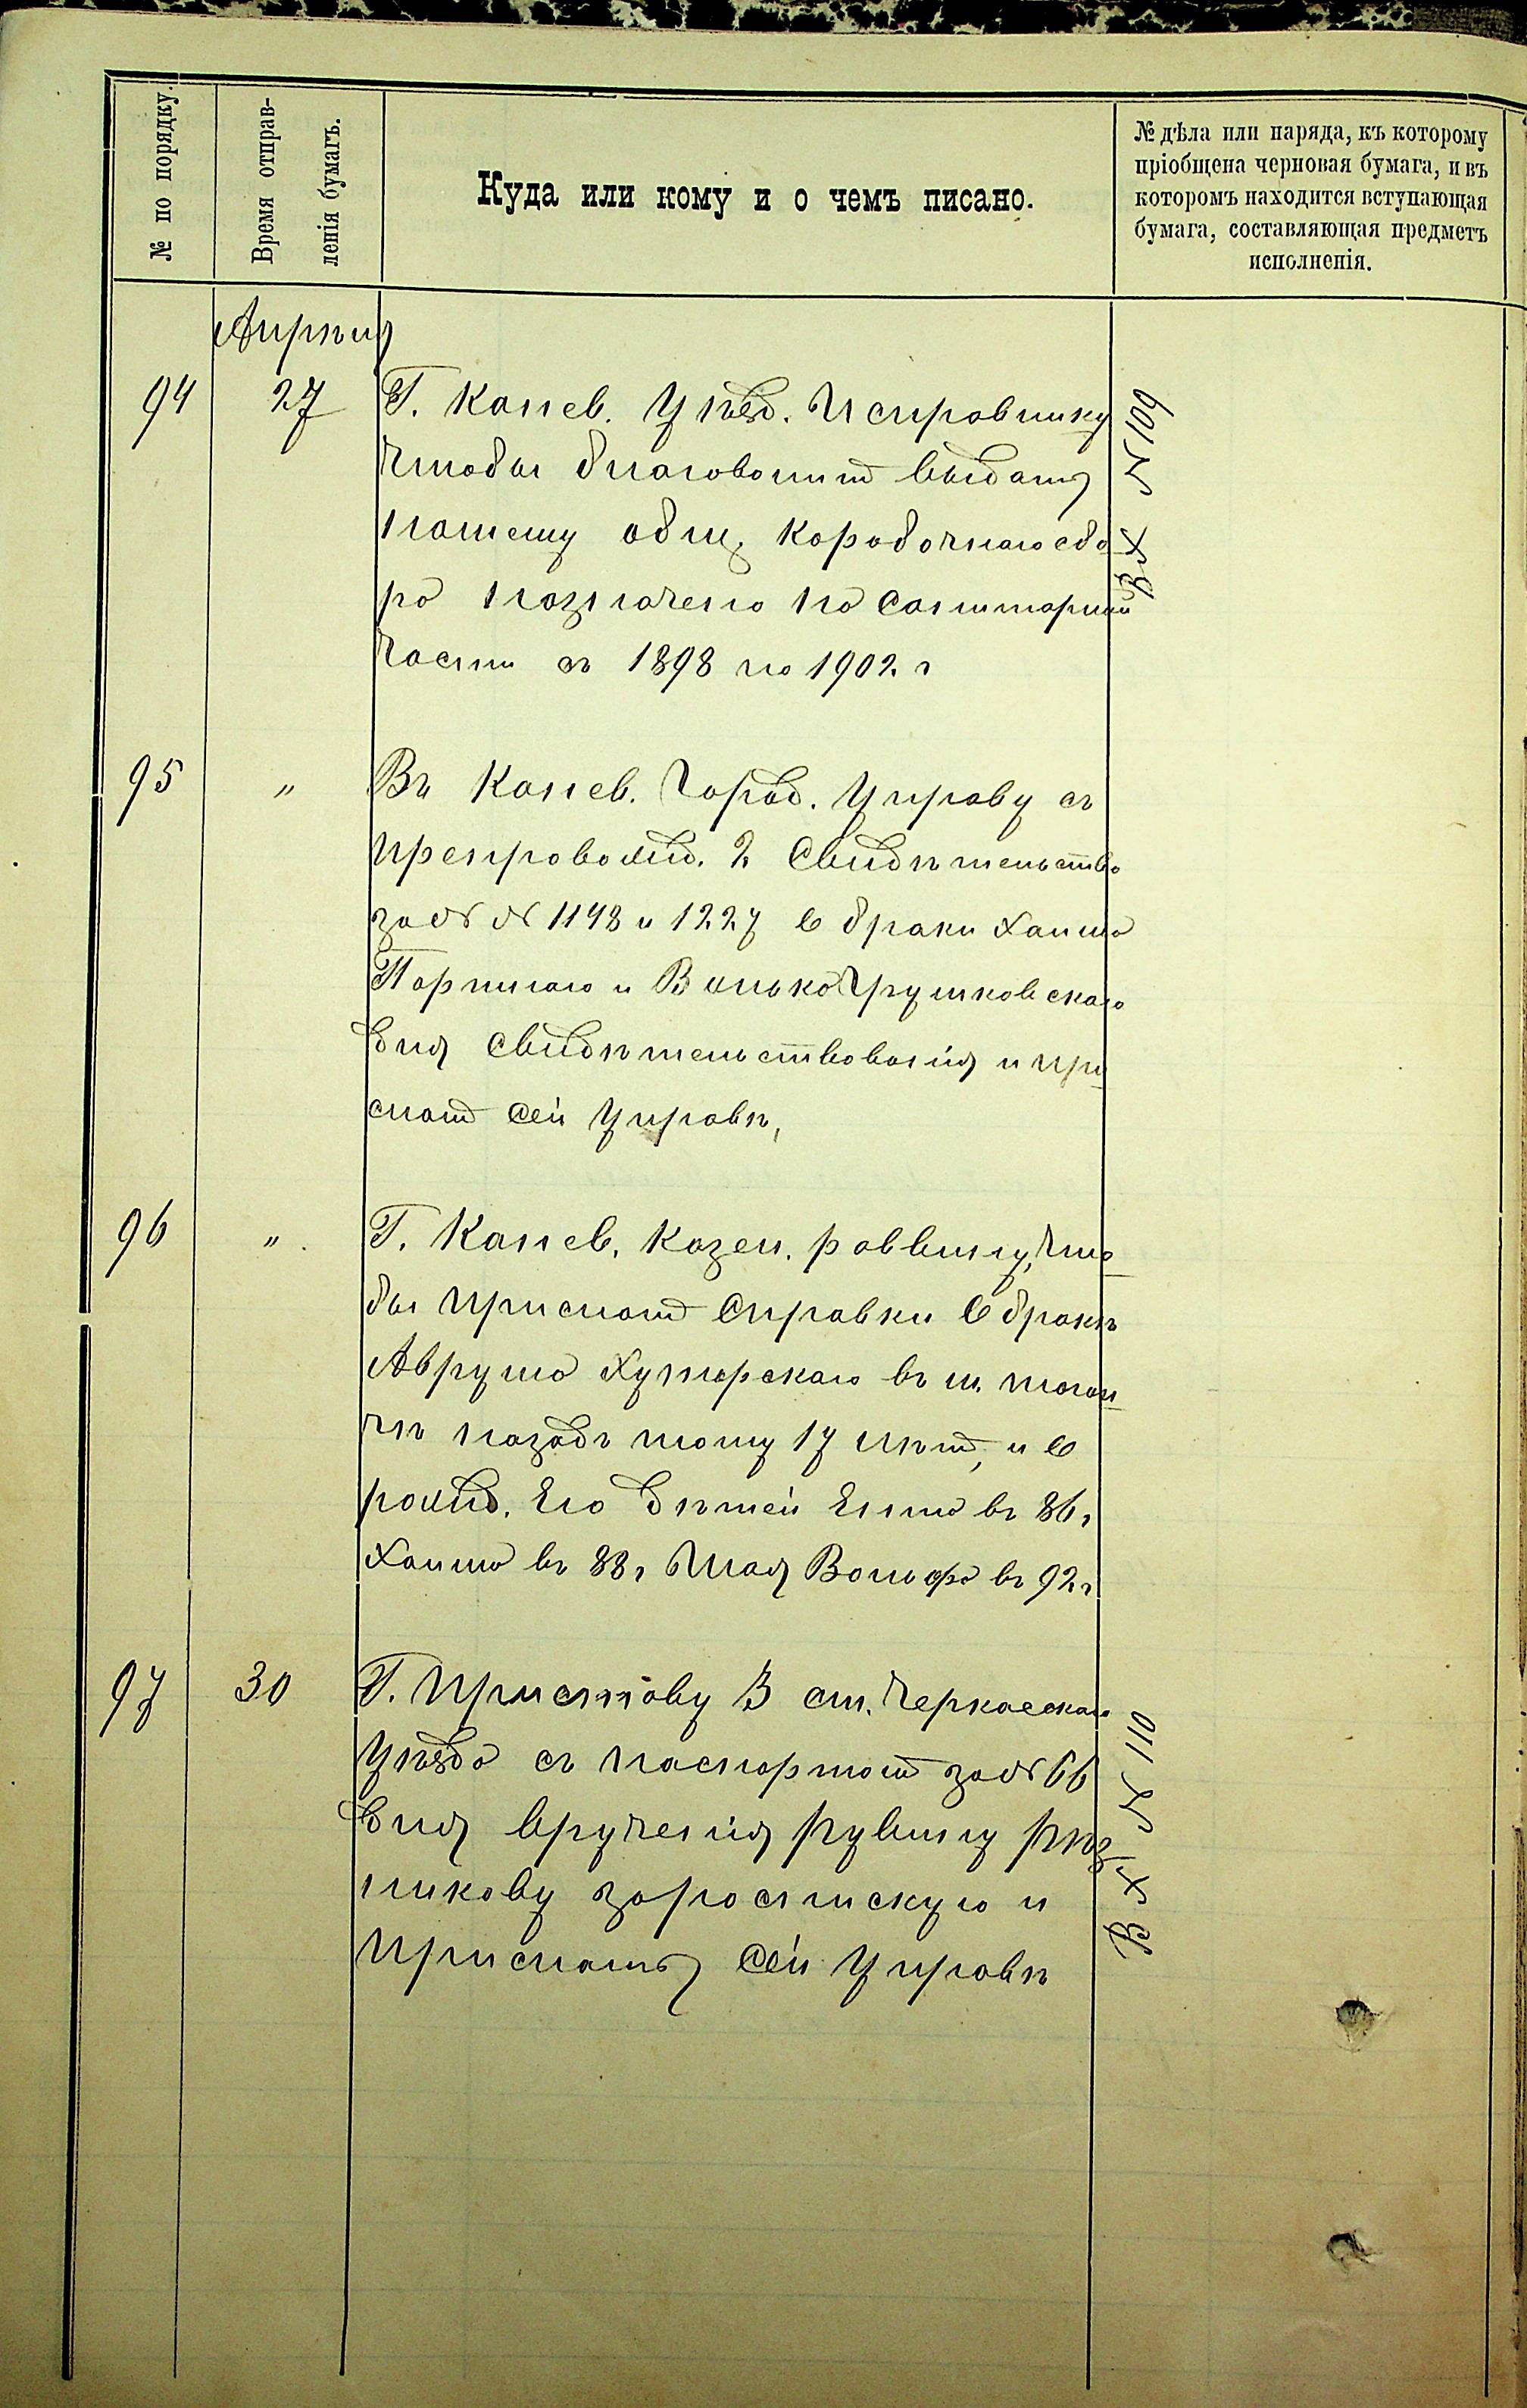 № по порядку.
Время отправ-
ленія бумагъ.
Куда или кому и о чемъ писано.
№ дѣла или наряда, къ которому
пріобщена черновая бумага, и въ
которомъ находится вступающая
бумага, составляющая предметъ
исполненія.
Апрѣля
94 27 Г. Канев. Уѣзд. Исправнику
чтобы благоволит выдать
нашему общ. коробочнаго сбо
ра назначено по санитарной
части съ 1898 по 1902 г
Вх №109
95 " Въ Канев. Город. Управу съ
препровожд. 2 Свидѣтельства
за № № 1148 и 1227 о браки Хаима
и Волько Грушковскаго
для Свидѣтельствованія и при
слат сей Управѣ,
96 " Г. Канев. казен. раввину, что
бы прислат справки о бракѣ
Аврума Хуторскаго въ м.
назадъ тому 17 лѣт, и о
рожд. Его дѣтей въ 86 г
Хаима въ 88 г Вольфа въ 92 г
97 30 Г. Приставу 3 ст. Черкасскаго
Уѣзда съ паспортом за № 66
для врученія Рувину Рѣз
никову за роспискую и
прислать сей Управѣ
Вх № 110